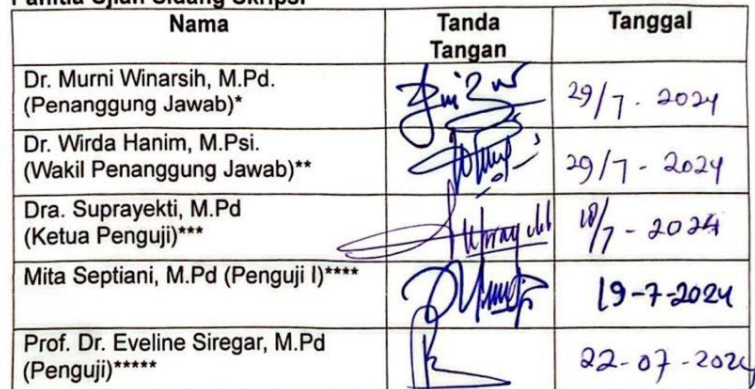 Panitia Ujian Sidang Skripsi
Nama Tanda Tangan Tanggal
Dr. Murni Winarsih, M.Pd.
(Penanggung Jawab)* 29/7 - 2024
Dr. Wirda Hanim, M.Psi.
(Wakil Penanggung Jawab)** 29/7 - 2024
Dra. Suprayekti, M.Pd
(Ketua Penguji)*** 18/7 - 2024
Mita Septiani, M.Pd (Penguji I)**** 19-7-2024
Prof. Dr. Eveline Siregar, M.Pd
(Penguji)***** 22-07-2024